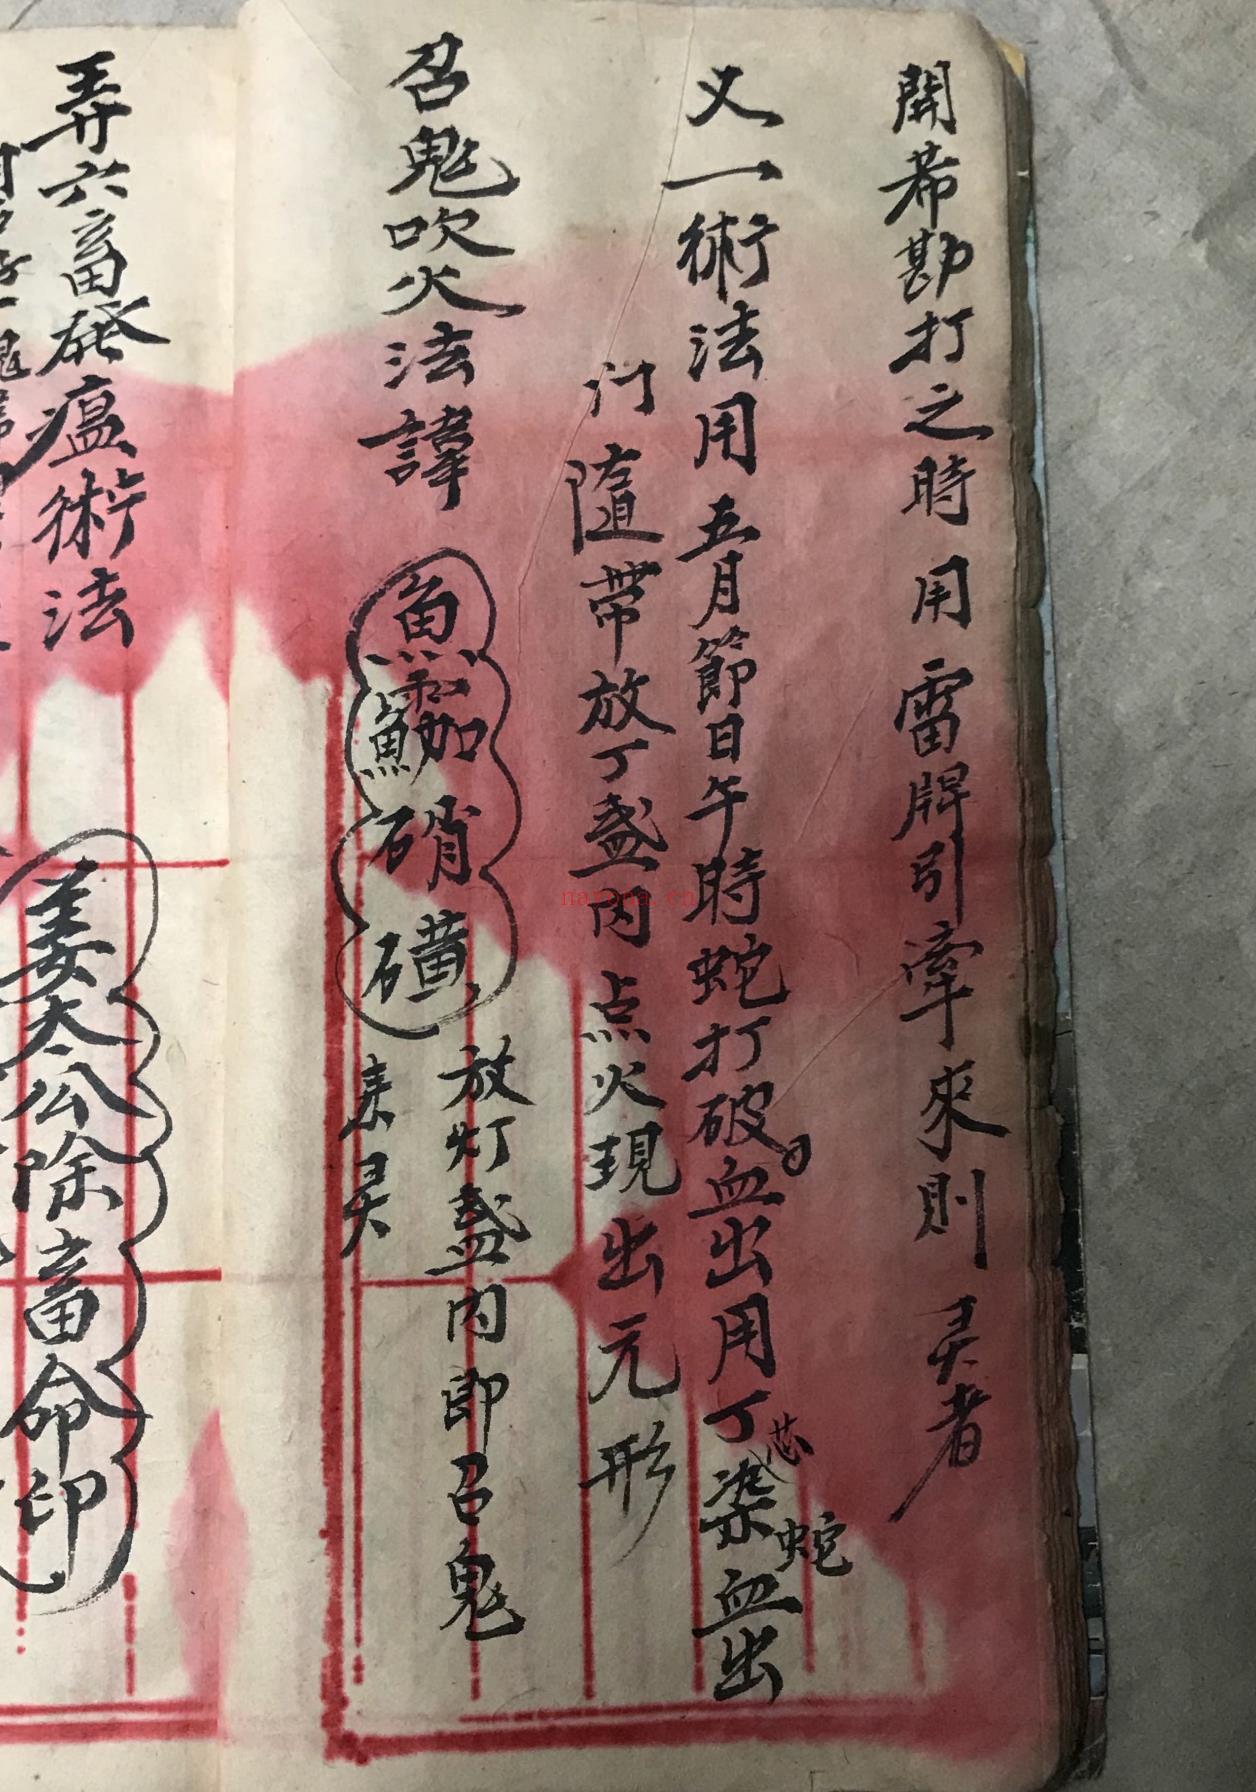 開希勘打之時用雷牌引牽來則灵者
又一術法用五月節日午時蛇打破血出用丁芯染蛇血出
门隨带放丁盏内点火現出元形
召鬼吹火法諱
硝磺
放灯盏内即召鬼
来灵
弄六畜發瘟術法
姜太公除畜命印
naropa.ca